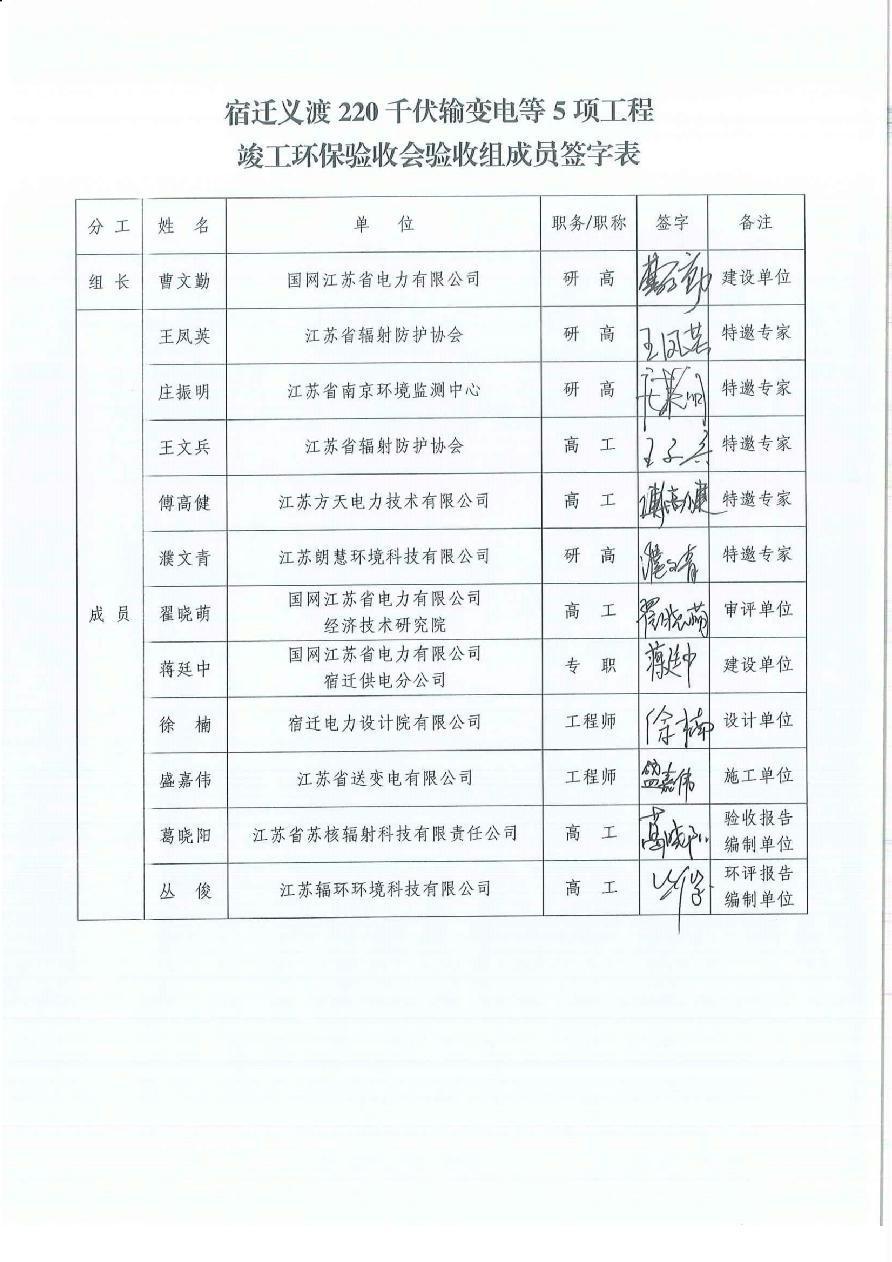 宿迁义渡 220 千伏输变电等 5 项工程
竣工环保验收会验收组成员签字表
分 工 姓 名 单 位 职务/职称 签字 备注
组 长 曹文勤 国网江苏省电力有限公司 研 高 曹文勤 建设单位
成 员
王凤英 江苏省辐射防护协会 研 高 王凤英 特邀专家
庄振明 江苏省南京环境监测中心 研 高 庄振明 特邀专家
王文兵 江苏省辐射防护协会 高 工 王文兵 特邀专家
傅高健 江苏方天电力技术有限公司 高 工 傅高健 特邀专家
濮文青 江苏朗慧环境科技有限公司 研 高 濮文青 特邀专家
翟晓萌 国网江苏省电力有限公司
经济技术研究院 高 工 翟晓萌 审评单位
蒋廷中 国网江苏省电力有限公司
宿迁供电分公司 专 职 蒋廷中 建设单位
徐 楠 宿迁电力设计院有限公司 工程师 徐楠 设计单位
盛嘉伟 江苏省送变电有限公司 工程师 盛嘉伟 施工单位
葛晓阳 江苏省苏核辐射科技有限责任公司 高 工 葛晓阳 验收报告
编制单位
丛 俊 江苏辐环环境科技有限公司 高 工 丛俊 环评报告
编制单位